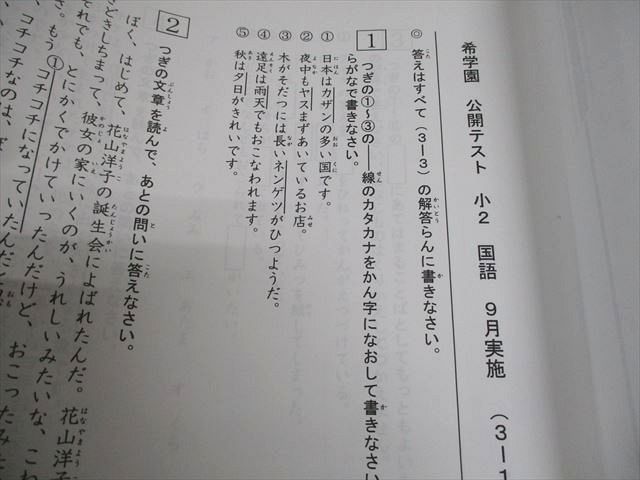 希学園 公開テスト 小2 国語 9月実施 (3-1
◎ 答えはすべて(3-3)の解答らんに書きなさい。
1 つぎの①~③の――線のカタカナをかん字になおして書きなさい
らがなで書きなさい。
① 日本はカザンの多い国です。
② 夜中もヤスまずあいているお店。
③ 木がそだつには長いネンゲツがひつようだ。
④ 遠足は雨天でもおこなわれます。
⑤ 秋は夕日がきれいです。
2 つぎの文章を読んで、あとの問いに答えなさい。
ぼく、はじめて、花山洋子の誕生会によばれたんだ。花山洋子
どきしちまって、彼女の家にいくのが、うれしいみたいな、こわ
それでも、とにかくでかけていったんだけど、おこったみた
さ。もう①コチコチになっていたんだと
コチコチなのは、ぼ